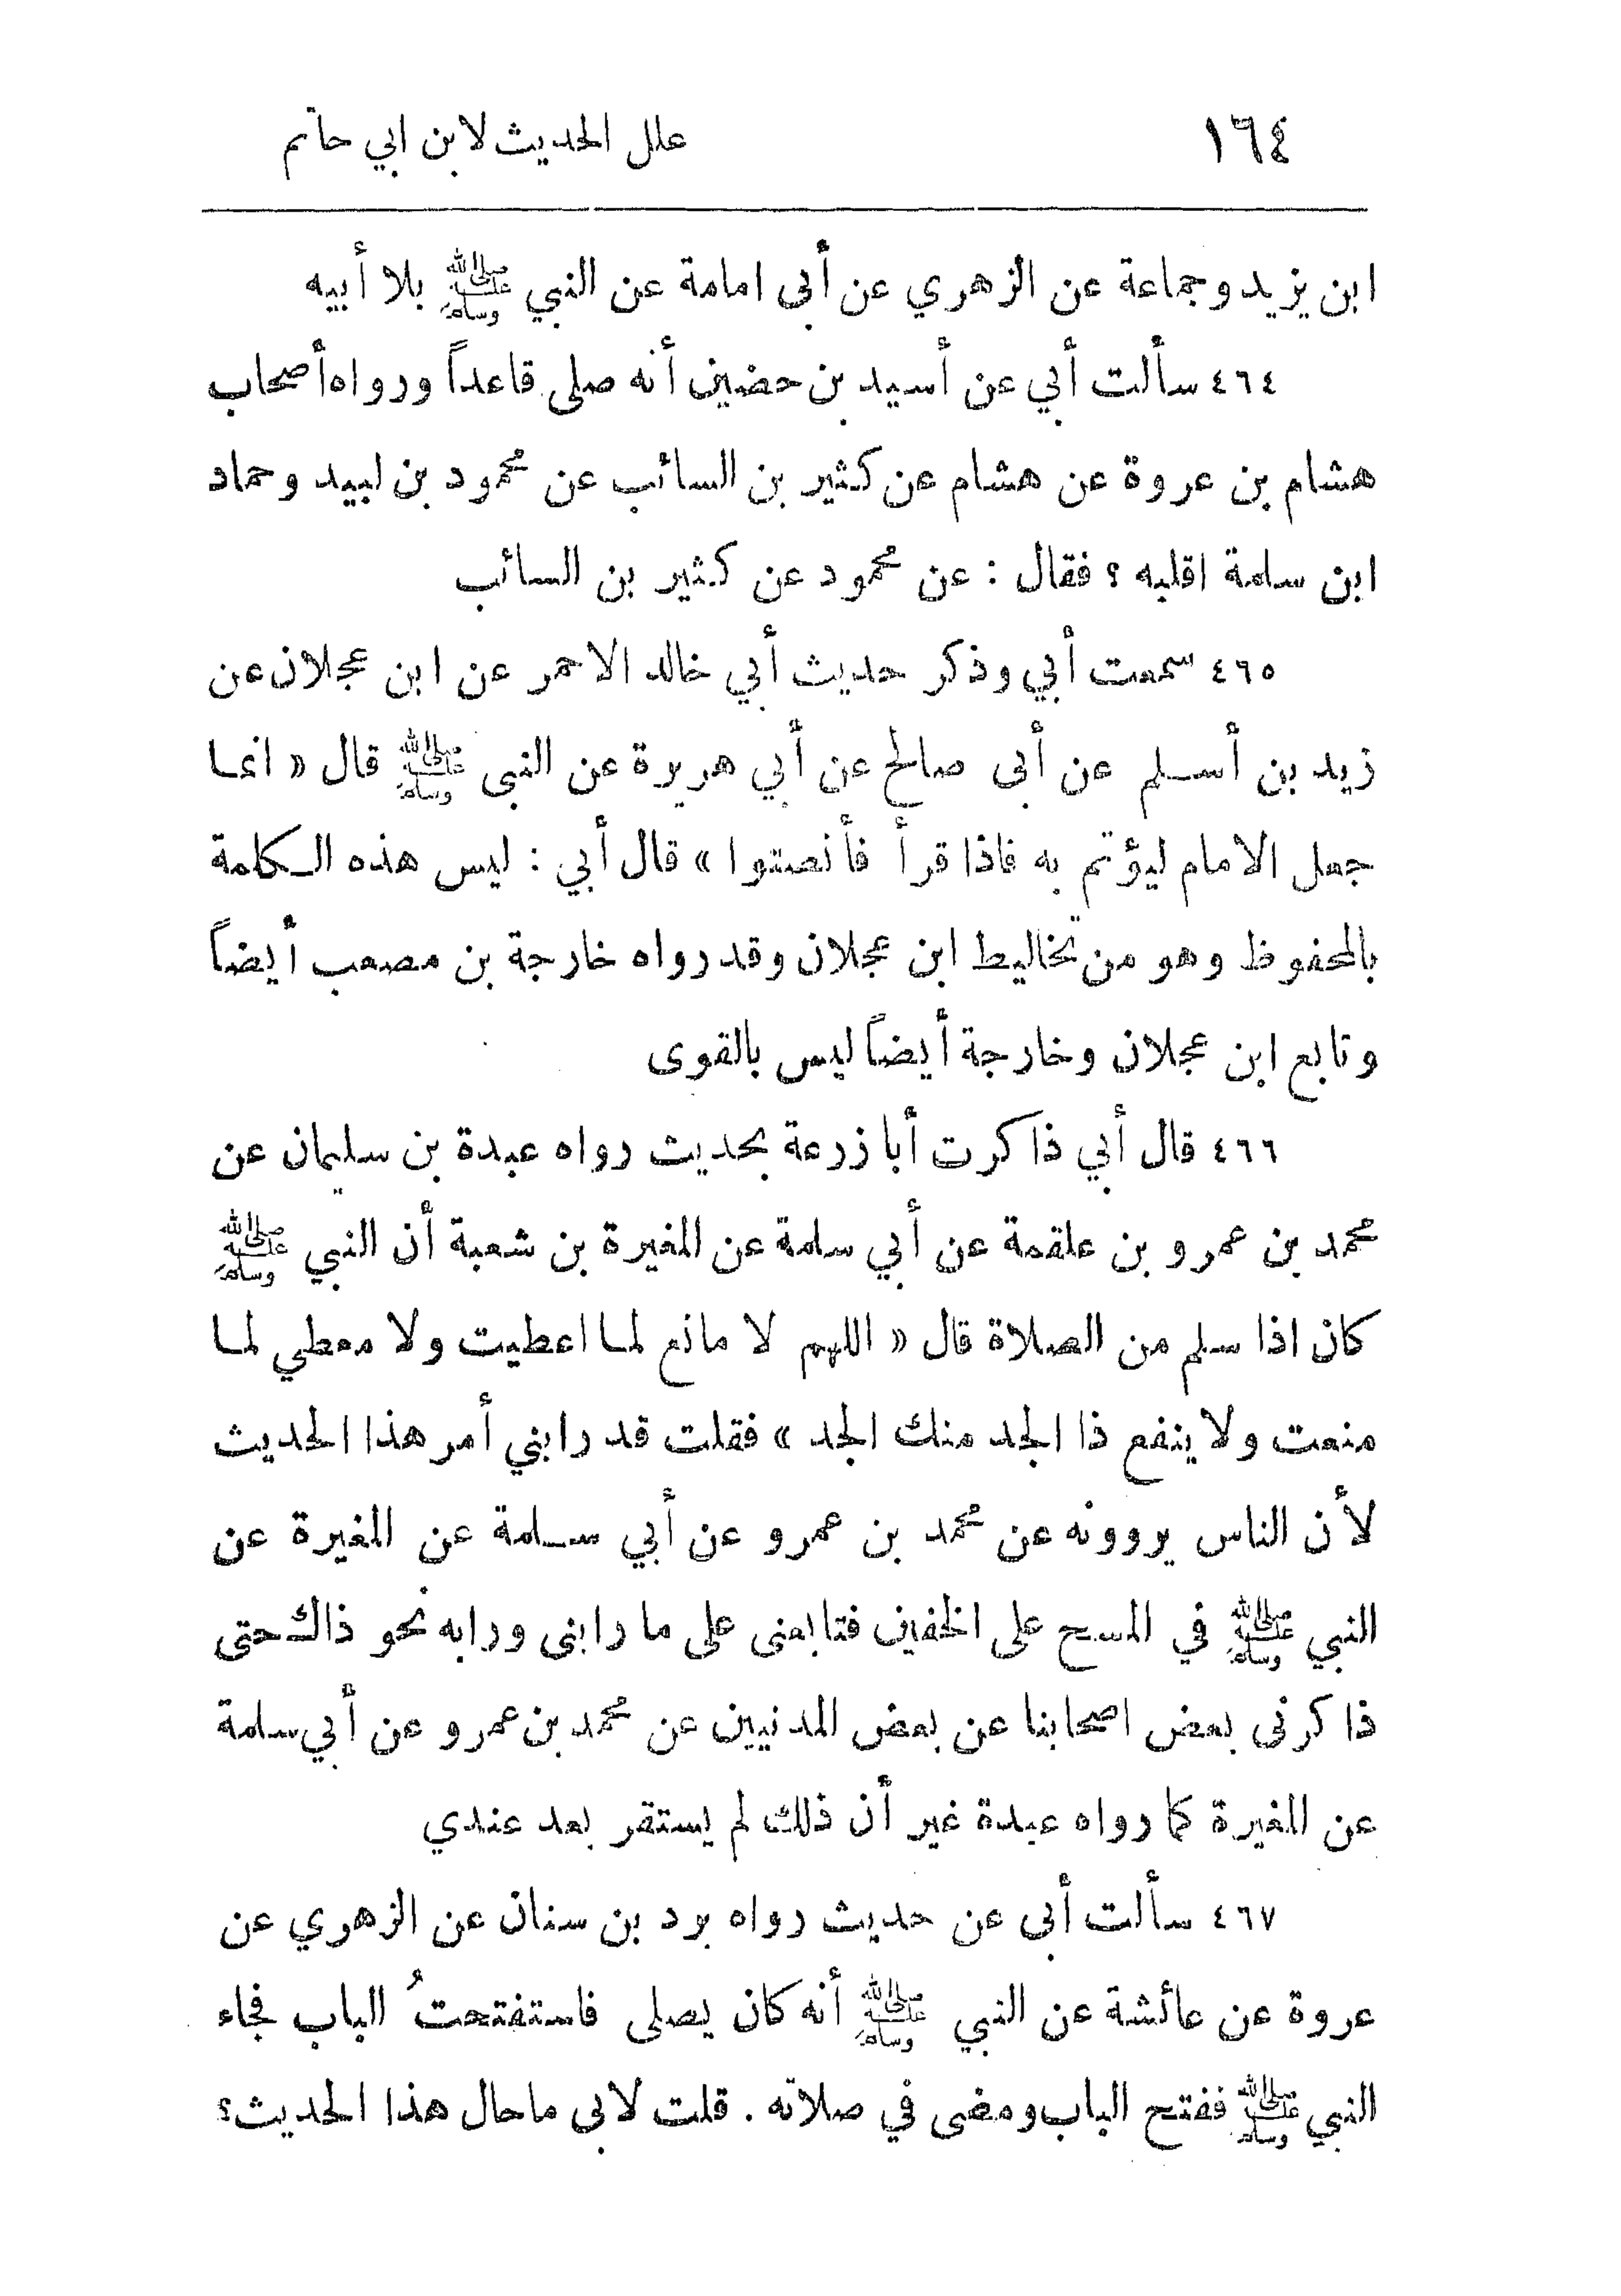 ١٦٤ علل الحديث لابن ابي حاتم
ابن يزيد وجماعة عن الزهري عن أبى امامة عن النبي ﷺ بلا أبيه
٤٦٤ سألت أبي عن أسيد بن حضين أنه صلى قاعداً ورواه أصحاب
هشام بن عروة عن هشام عن كثير بن السائب عن محمود بن لبيد وحماد
ابن سلمة اقلبه ؟ فقال : عن محمود عن كثير بن السائب
٤٦٥ سمعت أبي وذكر حديث أبي خالد الاحمر عن ابن عجلان عن
زيد بن أسلم عن أبى صالح عن أبي هريرة عن النبى ﷺ قال « انما
جعل الامام ليؤتم به فاذا قرأ فأنصتوا » قال أبي : ليس هذه الكلمة
بالمحفوظ وهو من تخاليط ابن عجلان وقد رواه خارجة بن مصعب أيضاً
وتابع ابن عجلان وخارجة أيضاً ليس بالقوى
٤٦٦ قال أبي ذاكرت أبا زرعة بحديث رواه عبدة بن سليمان عن
محمد بن عمرو بن علقمة عن أبي سلمة عن المغيرة بن شعبة أن النبي ﷺ
كان اذا سلم من الصلاة قال « اللهم لا مانع لما اعطيت ولا معطي لما
منعت ولا ينفع ذا الجد منك الجد » فقلت قد رابني أمر هذا الحديث
لأن الناس يروونه عن محمد بن عمرو عن أبي سلمة عن المغيرة عن
النبي ﷺ في المسح على الخفين فتابعنى على ما رابنى ورابه نحو ذاك حتى
ذاكرنى بعض اصحابنا عن بعض المدنيين عن محمد بن عمرو عن أبي سلمة
عن المغيرة كما رواه عبدة غير أن ذلك لم يستقر بعد عندي
٤٦٧ سألت أبى عن حديث رواه برد بن سنان عن الزهري عن
عروة عن عائشة عن النبي ﷺ أنه كان يصلى فاستفتحتُ الباب فجاء
النبي ﷺ ففتح الباب ومضى في صلاته . قلت لابى ما حال هذا الحديث؟